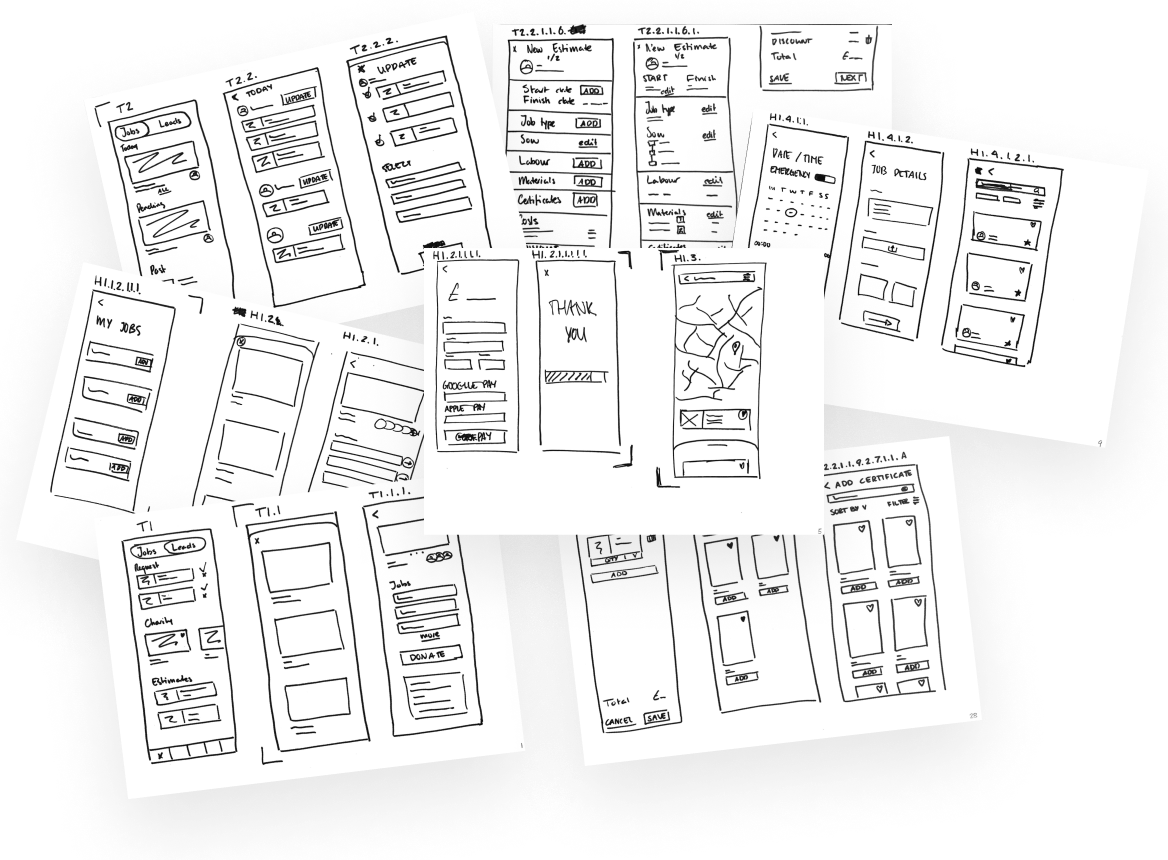 T2
Jobs Leads
Today
ALL
Pending
Past
T2.2.
TODAY
UPDATE
UPDATE
UPDATE
T2.2.2.
x UPDATE
T2.2.1.1.6.
x New Estimate
1/2
Start date ADD
Finish date
Job type ADD
Sow edit
Labour ADD
Materials ADD
Certificates ADD
T2.2.1.1.6.1.
x New Estimate
1/2
START Finish
edit
Job type edit
Sow edit
Labour edit
Materials edit
DISCOUNT
Total £
SAVE NEXT
H1.4.1.1.
<
DATE / TIME
EMERGENCY
M T W T F S S
00:00
H1.4.1.2.
<
JOB DETAILS
H1.4.1.2.1.
<
H1.1.2.1.1.1.
<
MY JOBS
ADD
ADD
ADD
ADD
H1.2
x
H1.2.1.
<
H1.2.1.1.1.1.
<
£
GOOGLLE PAY
APPLE PAY
H1.2.1.1.1.1.1.
x
THANK
YOU
H1.3.
<
T1
Jobs Leads
Request
Charity
Estimates
T1.1
x
T1.1.1.
<
Jobs
more
DONATE
1
QTY 1 V
ADD
Total £
CANCEL SAVE
ADD
ADD
ADD
2.2.1.1.9.2.7.1.1. A
< ADD CERTIFICATE
SORT BY V FILTER
ADD
ADD
ADD
ADD
28
5
9